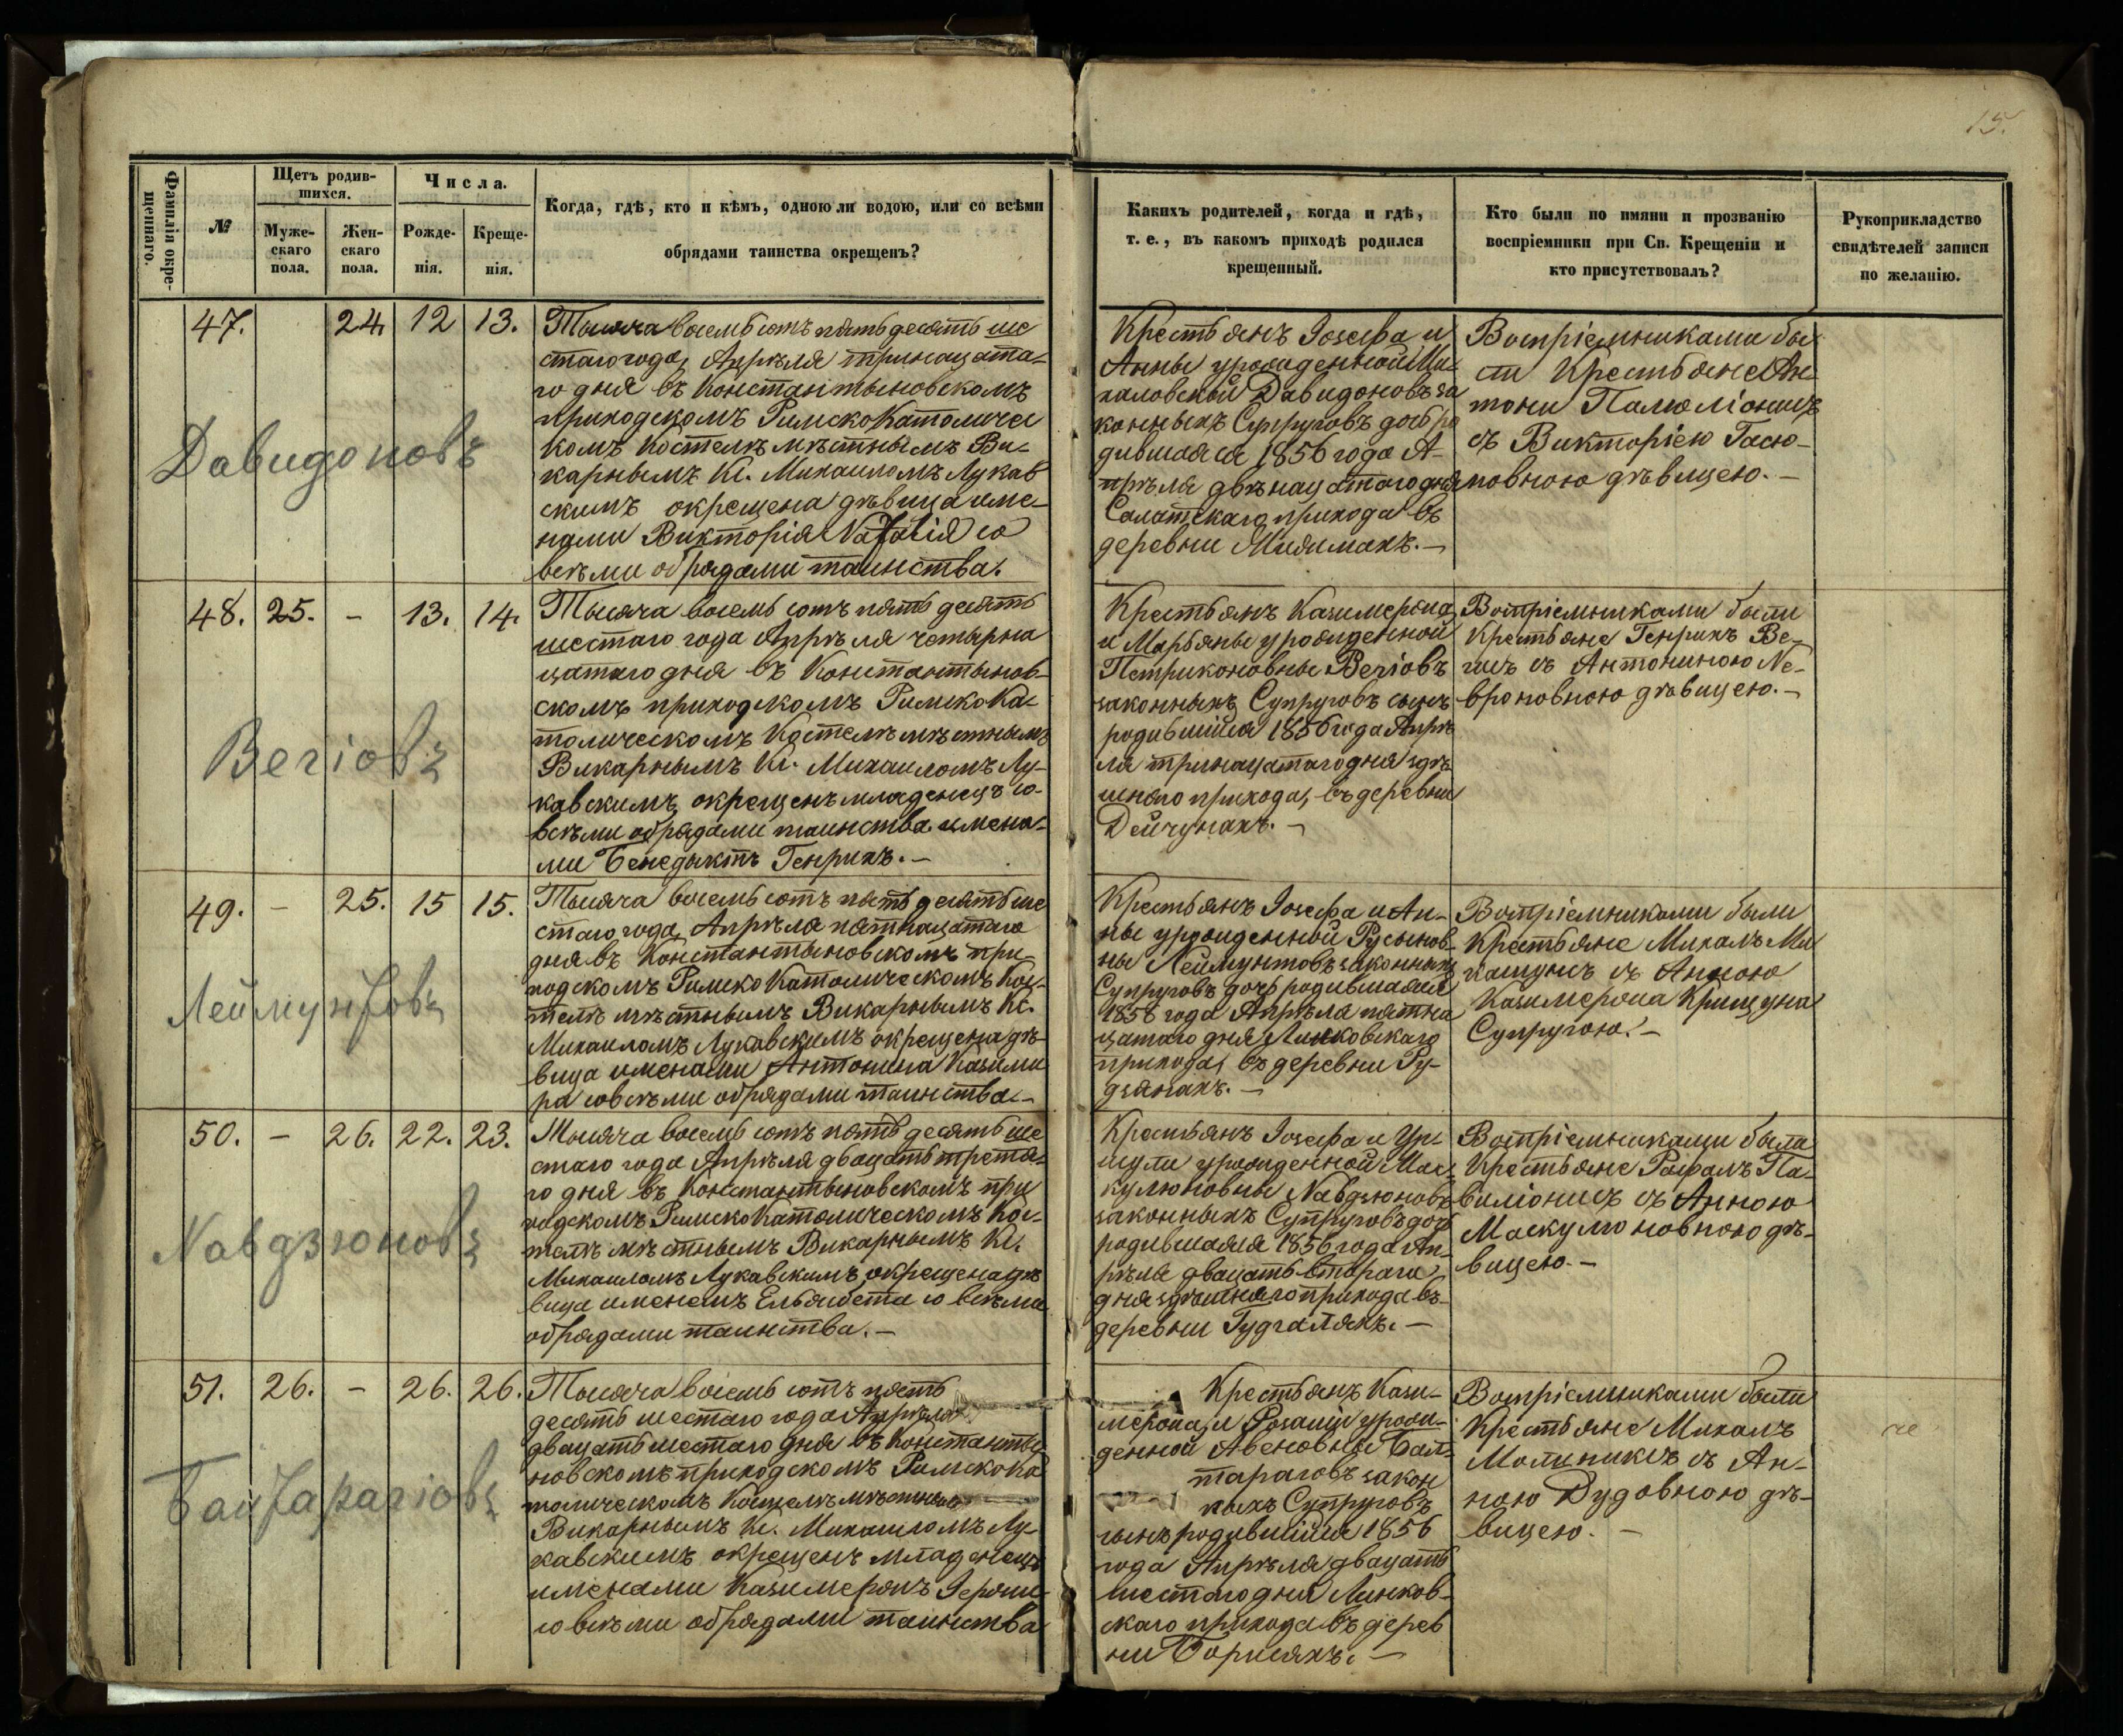 15.
Фамилія окре-
щеннаго.
№
Щетъ родив-
шихся.
Муже-
скаго
пола.
Жен-
скаго
пола.
Числа.
Рожде-
нія.
Креще-
нія.
Когда, гдѣ, кто и кѣмъ, одною ли водою, или со всѣми
обрядами таинства окрещенъ?
Какихъ родителей, когда и гдѣ,
т. е., въ какомъ приходѣ родился
крещенный.
Кто были по имяни и прозванію
воспріемники при Св. Крещеніи и
кто присутствовалъ?
Рукоприкладство
свидѣтелей записи
по желанію.
47.
24.
12
13.
Давидоновъ
Тысяча восемь сотъ пять десять ше
стаго года, Апрѣля тринацата-
го дня въ Константыновскомъ
приходскомъ Римско Католичес
комъ Костелѣ мѣстнымъ Ви-
карнымъ Кс. Михаиломъ Лукав
скимъ окрещена дѣвица име-
нами Викторія Nаталія со
всѣми обрядами таинства.
Крестьянъ Іозефа и
Анны урожденной Ми-
халовской Давидоновъ за
конныхъ Супруговъ дочь ро
дившаяся 1856 года А-
прѣля двѣнацатаго дня
Салатскаго прихода въ
деревни
Воспріемниками бы
ли Крестьяне Ан-
тони Палюліонисъ
съ Викторіею Гасю-
новною дѣвицею. -
48.
25.
-
13.
14.
Веrіовъ
Тысяча восемь сотъ пять десять
шестаго года Апрѣля четырна
цатаго дня въ Константынов-
скомъ приходскомъ Римско Ка-
толическомъ Костелѣ мѣстнымъ
Викарнымъ Кс. Михаиломъ Лу-
кавскимъ окрещенъ младенецъ со
всѣми обрядами таинства имена-
ми Бенедыктъ Генрихъ. -
Крестьянъ Казимержа
и Марьяны урожденной
Петриконовны Веrіовъ
законныхъ Супруговъ сынъ
родившійся 1856 года Апрѣ
ля тринацатаго дня здѣ
шняго прихода, въ деревни
Дейчунахъ. -
Воспріемниками были
Крестьяне Генрихъ Ве-
гисъ съ Антониною Nе-
вроновною дѣвицею. -
49.
-
25.
15
15.
Леймунтовъ
Тысяча восемь сотъ пять десять ше
стаго года, Апрѣля пятнацатаго
дня въ Константыновскомъ при-
ходскомъ Римско Католическомъ Кос-
телѣ мѣстнымъ Викарнымъ Кс.
Михаиломъ Лукавскимъ окрещена дѣ-
вица именами Антонина Казими
ра со всѣми обрядами таинства. -
Крестьянъ Іозефа и Ан-
ны урожденной Русынов-
ны Леймунтовъ законныхъ
Супруговъ дочь родившаяся
1856 года Апрѣля пятна
цатаго дня Линковскаго
прихода, въ деревни Ру-
дзянахъ. -
Воспріемниками были
Крестьяне Михалъ Ми
съ Анною
Казимержа Крищуна
Супругою. -
50.
-
26.
22.
23.
Nавдзюновъ
Тысяча восемь сотъ пять десять ше
стаго года Апрѣля двацать третя-
го дня въ Константыновскомъ при
ходскомъ Римско Католическомъ Кос-
телѣ мѣстнымъ Викарнымъ Кс.
Михаиломъ Лукавскимъ окрещена дѣ
вица именемъ Ельжбета со всѣми
обрядами таинства. -
Крестьянъ Іозефа и Ур-
шули урожденной Мас-
кулюновны Nавдзюновъ
законныхъ Супруговъ дочь
родившаяся 1856 года Ап-
рѣля двацать втораго
дня здѣшняго прихода въ
деревни Гудгаляхъ. -
Воспріемниками были
Крестьяне Рафалъ Па-
виліонисъ съ Анною
Маскулюновною дѣ-
вицею. -
51.
26.
-
26.
26.
Байтараrіовъ
Тысяча восемь сотъ пять
десять шестаго года Апрѣля
двацать шестаго дня въ Константы
новскомъ приходскомъ Римско Ка
толическомъ Костелѣ мѣстнымъ
Викарнымъ Кс. Михаиломъ Лу-
кавскимъ окрещенъ младенецъ
именами Казимержъ
со всѣми обрядами таинства
Крестьянъ Кази-
мержа и Розаліи урож-
денной Авеновны Бай-
тараговъ закон
ныхъ Супруговъ
сынъ родившійся 1856
года Апрѣля двацать
шестаго дня Линков-
скаго прихода въ дерев
ни Борисяхъ. -
Воспріемниками были
Крестьяне Михалъ
съ Ан-
ною Дудовною дѣ-
вицею. -